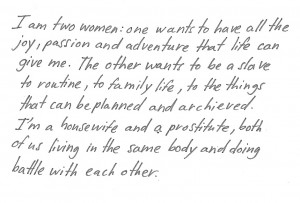 I am two women: one wants to have all the
joy, passion and adventure that life can
give me. The other wants to be a slave
to routine, to family life, to the things
that can be planned and archieved.
I'm a housewife and a prostitute, both
of us living in the same body and doing
battle with each other.